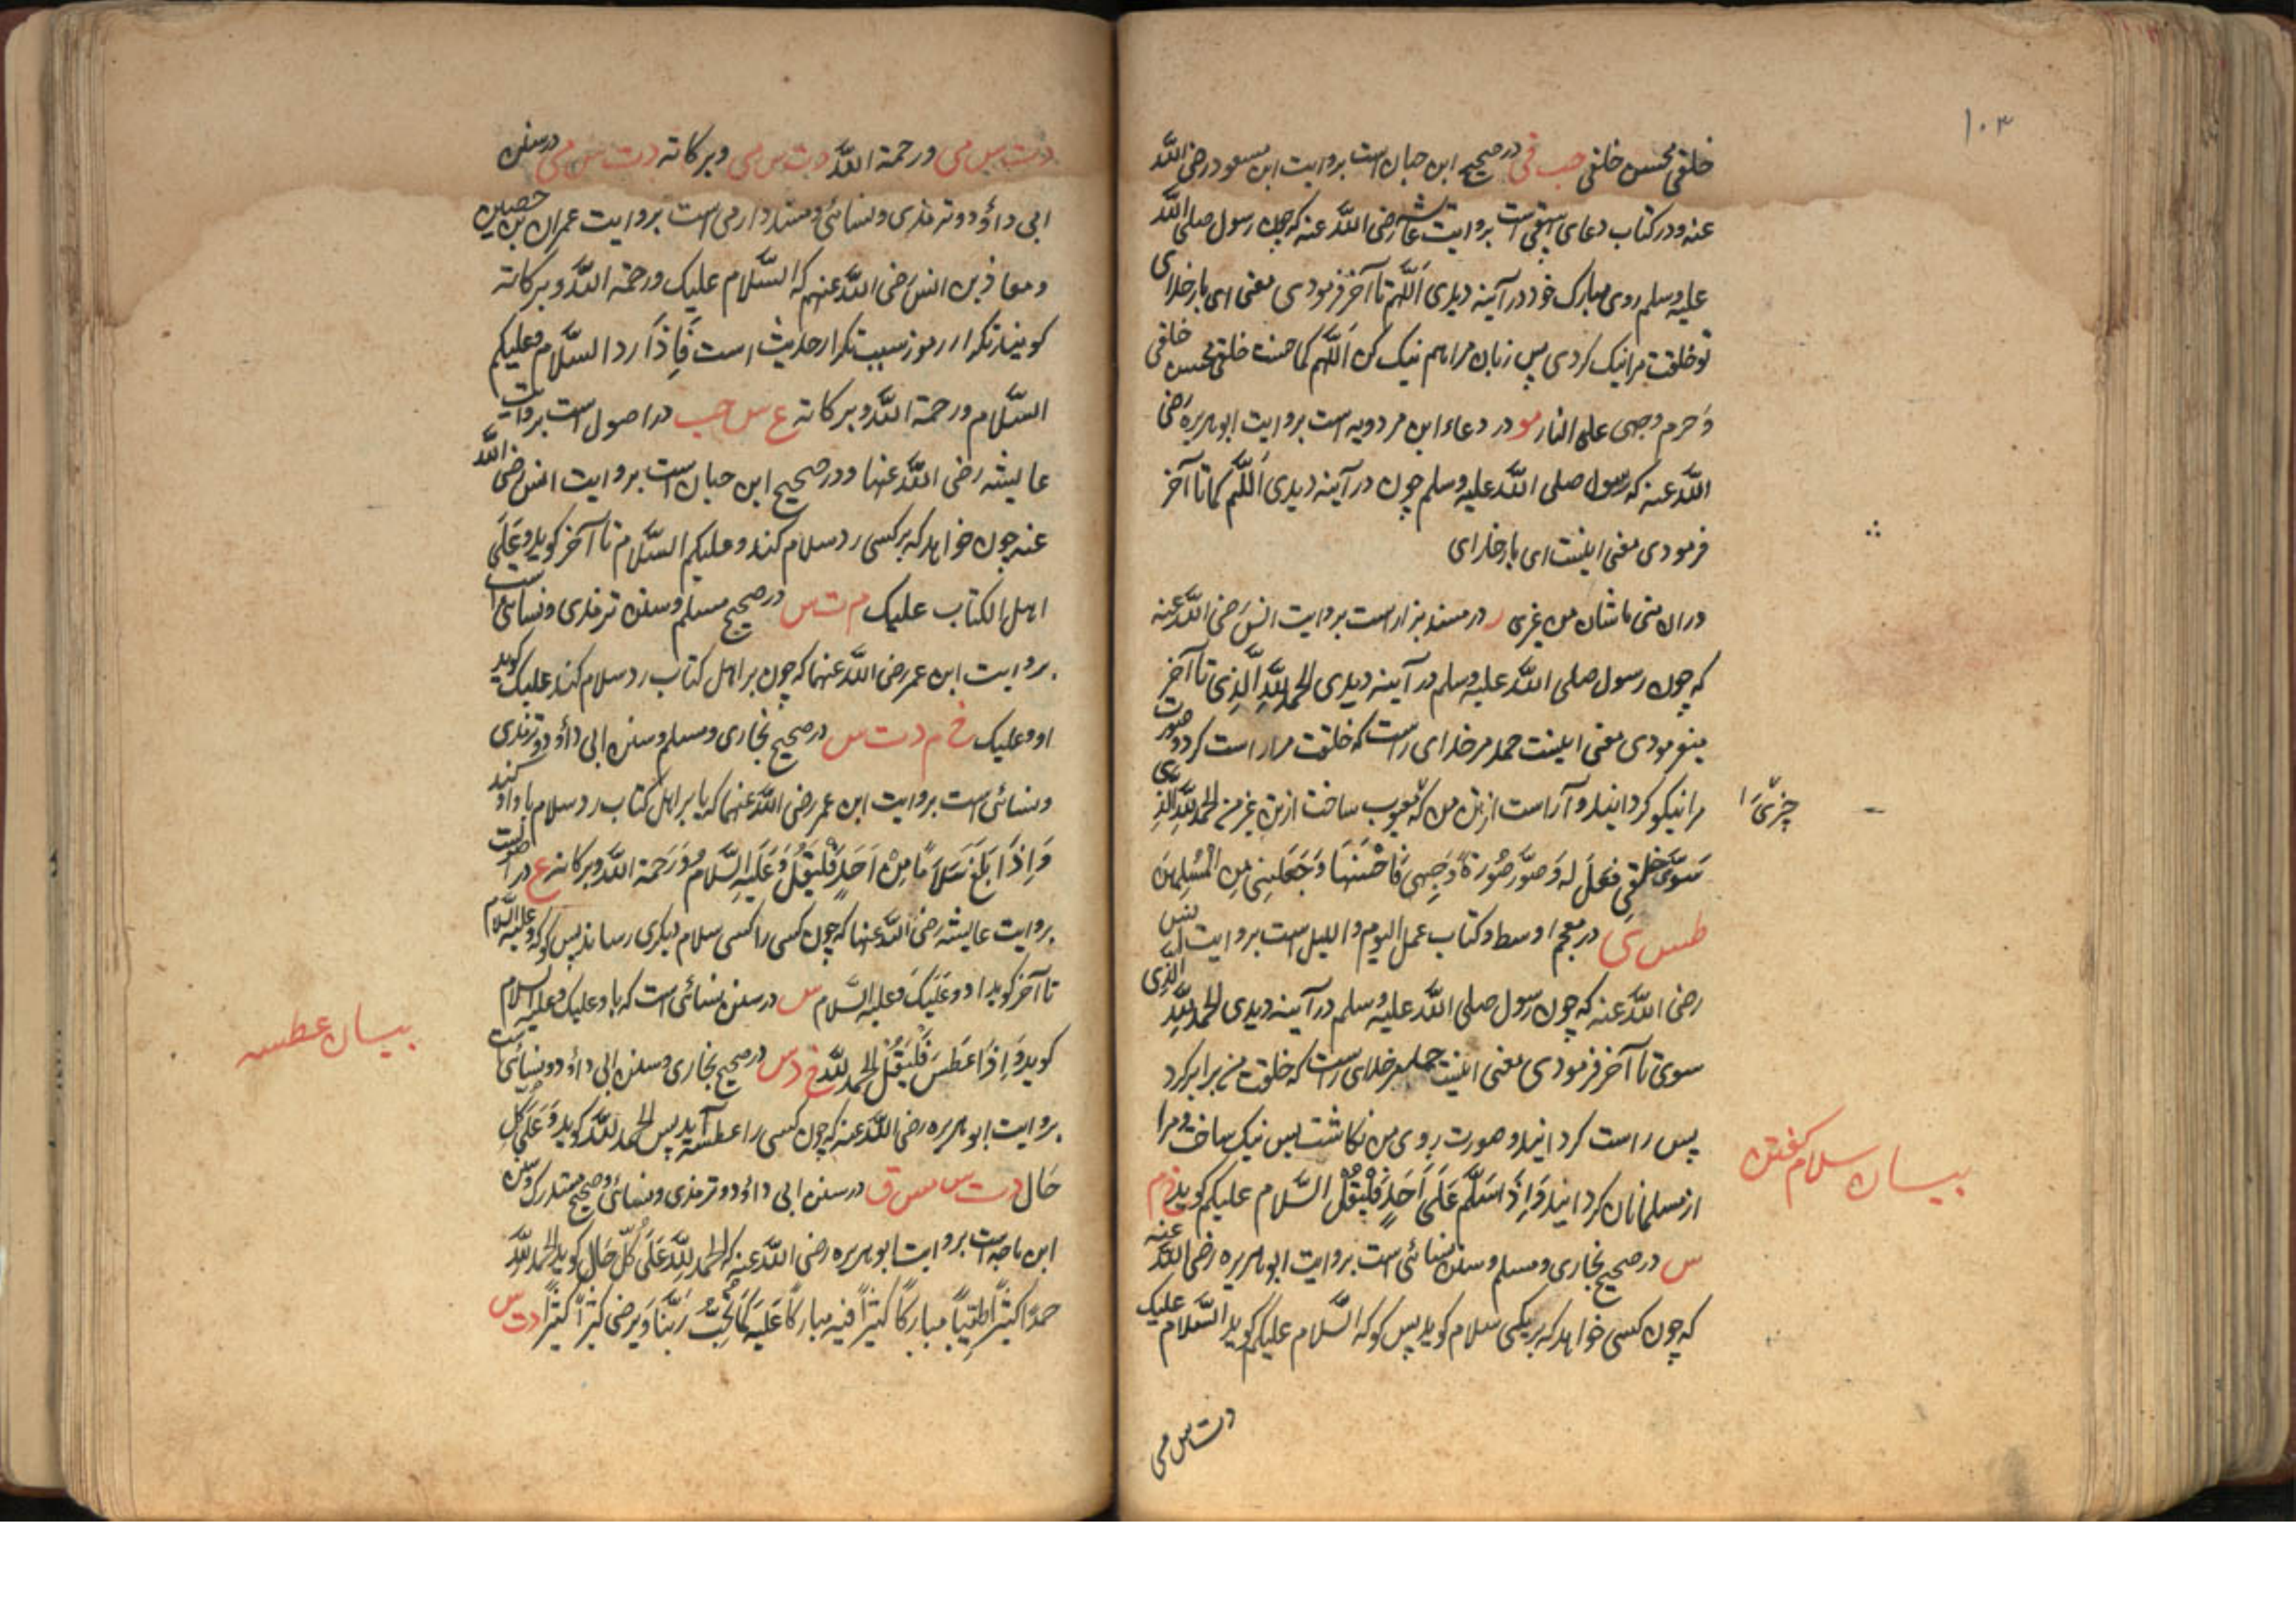 ١٠٣
خلقی فحسن خلقی حب قی در صحیح ابن حبان است بروایت ابن مسعود رضی الله
عنه و در کتاب دعای بیهقی است بروایت عائشه رضی الله عنه که چون رسول صلی الله
علیه وسلم روی مبارک خود در آینه دیدی اَللّٰهم تا آخر فرمودی معنی ای بار خدای
تو خلقت مرا نیک کردی پس زبان مرا هم نیک کن اَللّٰهم کما حسنت خلقی فحسن خلقی
وَ حرم وجهی علی النار مو در دعاء ابن مردویه است بروایت ابو هریره رَضی
اللّٰه عنه که رسول صلی اللّٰه علیه وسلم چون در آینه دیدی اَللّٰهم کما تا آخر
فرمودی معنی اینست ای بار خدای
در مسند بزار است بروایت انس رَضی اللّٰه عنه
که چون رسول صلی اللّٰه علیه وسلم در آینه دیدی الحمد للّٰه الَّذِی تا آخر
میفرمودی معنی اینست حمد مر خدای راست که خلقت مرا راست کرد و صورت
مرا نیکو کردانید و آراست از تن من که معیوب ساخت از تن غیر من الحمد للّٰه الذِی
سَوّیٰ خَلقی فعدلَ له وَ صوَّر صُورَةَ وَجهِی فَاَحْسَنَهَا وَجَعَلَنِی مِن الْمُسْلِمِینَ
طس ی در معجم اوسط و کتاب عمل الیوم واللیل است بروایت انس
رضی اللّٰه عنه که چون رسول صلی اللّٰه علیه وسلم در آینه دیدی الحمد للّٰه الذی
سوی تا آخر فرمودی معنی اینست حمد مر خدای راست که خلقت من برابر کرد
پس راست کردانید و صورت روی من نکاشت پس نیک ساخت و مرا
از مسلمانان کردانید وَاِذَا سَلَّمَ عَلَی اَحَدٍ فَلْیَقُلْ السَّلام علیکم کوید خ م
س در صحیح بخاری و مسلم و سنن نسائی است بروایت ابو هریره رضی اللّٰه عنه
که چون کسی خواهد که بر یکی سلام کوید پس کو که السَّلام علیکم کوید السَّلام علیک
بیسان سلام کفتن
دت س می
دت س می ورحمة اللّٰه دت س می وبرکاته دت س می در سنن
ابی داؤد و ترمذی و نسائی و مسند دارمی است بروایت عمران بن حصین
و معاذ بن انس رَضی اللّٰه عنهم که السَّلام علیک ورحمة اللّٰه وبرکاته
کویند تکرار رموز سبب تکرار حدیث است فَاِذَا رد السَّلام وعلیکم
السَّلام ورحمة اللّٰه وبرکاته ع س حب در اصول است بروایت
عایشه رَضی اللّٰه عنها و در صحیح ابن حبان است بروایت انس رَضی اللّٰه
عنه چون خواهد که بر کسی رد سلام کند وعلیکم السَّلام تا آخر کوید وعَلَی
اهل الکتاب علیک م ت س در صحیح مسلم و سنن ترمذی و نسائی است
بروایت ابن عمر رضی اللّٰه عنهما که چون بر اهل کتاب رد سلام کند علیک کوید
او وعلیک خ م د ت س در صحیح بخاری و مسلم و سنن ابی داؤد و ترمذی
و نسائی است بروایت ابن عمر رضی اللّٰه عنهما که یا بر اهل کتاب رد سلام با واو کند
وَاِذَا بَلَّغَ سَلَامًا مِنْ اَحَدٍ فَلْیَقُلْ وَعَلَیْهِ السَّلَامُ وَرَحمة اللّٰه وبرکاته ع در اصول است
بروایت عایشه رضی اللّٰه عنها که چون کسی را کسی سلام دیکری رساند پس کو که وعلیه السَّلام
تا آخر کوید او وَعَلَیْکَ وَعلیه السَّلام س در سنن نسائی است که یا وعلیک وعلیه السلام
کوید وَاِذَا عَطَسَ فَلْیَقُلْ الحمد للّٰه خ د س در صحیح بخاری و سنن ابی داؤد و نسائی است
بروایت ابو هریره رضی اللّٰه عنه که چون کسی را عطسه آید پس الحمد للّٰه کوید وَعَلَی کُلِّ
حَال دت س مس ق در سنن ابی داؤد و ترمذی و نسائی و صحیح مستدرک و سنن
ابن ماجه است بروایت ابو هریره رضی اللّٰه عنه که الحمد للّٰه عَلَی کُلِّ حَال کوید الحمد للّٰه
حمدًا کثیرًا طَیِّبًا مبارکًا کثیرًا فیه مبارکًا عَلَیه کَمَا یُحِبُّ رَبُّنَا وَیَرضی کثیرًا کثیرًا دت س
بیسان عطسه